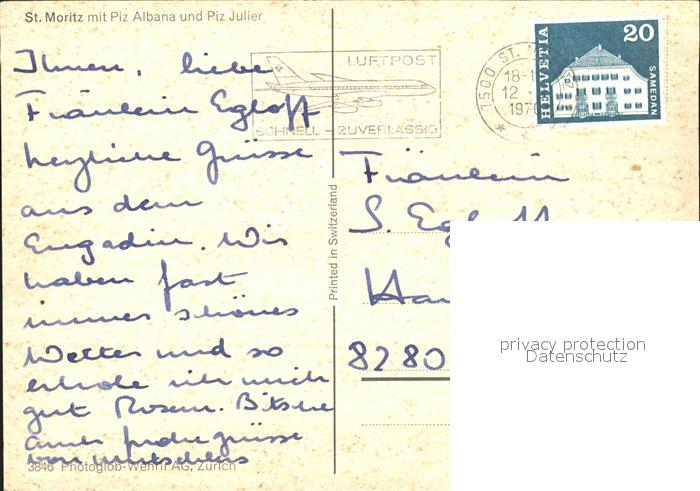 St. Moritz mit Piz Albana und Piz Julier
Ihnen, liebe
Fräulein Egloff
herzliche Grüsse
aus dem
Engadin. Wir
haben fast
immer schönes
Wetter und so
erhole ich mich
gut. Rosem. Bitsche
auch frohe Grüsse
von
3846 Photoglob-Wehrli AG, Zürich
Printed in Switzerland
LUFTPOST
SCHNELL – ZUVERLÄSSIG
7500 ST.
18-1
12
197
HELVETIA
20
SAMEDAN
Fräulein
S. Egloff
8280
privacy protection
Datenschutz